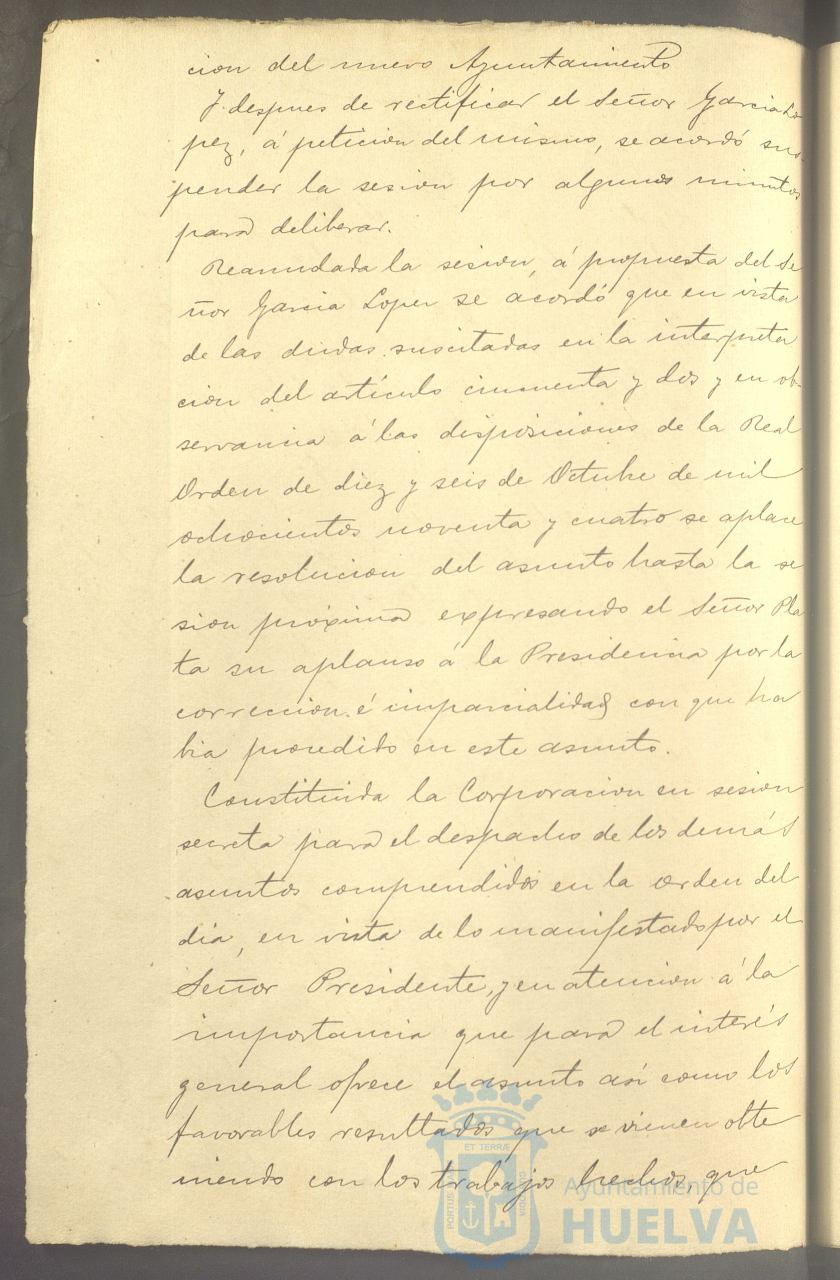 cion del nuevo Ayuntamiento
Y despues de rectificar el Señor Garcia Lo
pez, á peticion del mismo, se acordó sus-
pender la sesion por algunos minutos
para deliberar.
Reanudada la sesion, á propuesta del Se
ñor Garcia Lopez se acordó que en vista
de las dudas suscitadas en la interpreta
cion del artículo cincuenta y dos y en ob-
servancia á las disposiciones de la Real
Orden de diez y seis de Octubre de mil
ochocientos noventa y cuatro se aplace
la resolucion del asunto hasta la se
sion próxima expresando el Señor Pla
ta su aplauso á la Presidencia por la
correccion é imparcialidad con que ha
bia procedido en este asunto.
Constituida la Corporacion en sesion
secreta para el despacho de los demás
asuntos comprendidos en la orden del
dia, en vista de lo manifestado por el
Señor Presidente, y en atencion á la
importancia que para el interés
general ofrece el asunto asi como los
favorables resultados que se vienen obte
niendo con los trabajos hechos, que
ET TERRÆ
PORTUS
CUSTODIA
Ayuntamiento de
HUELVA